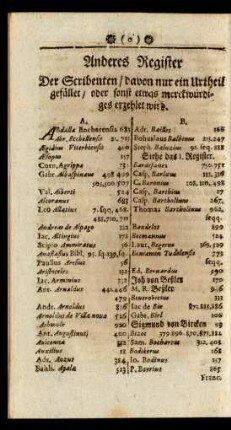 (o)
Anderes Register
Der Scribenten / davon nur ein Urtheil
gefället / oder sonst etwas merckwürdi-
ges erzehlet wird.
A.
Abdalla Bocharensis 683
Abr. Ecchellensis 21. 711
Ægidius Viterbiensis 410
Æsopus 117
Corn. Agrippa
Gabr. Albaspinæus 498 499
Val. Alberti 524
Alcoranus 683
Leo Allatius 7. seqq. 468.
Andreas de Alpago 111
Jac. Altingius 175
Scipio Ammiratus 36
Anastasius Bibl. 95. sq. 139. sq.
Paullus Aresius 36
Aristoteles 152
Jac. Arminius 732
Ant. Arnoldus 441. 446
470
Andr. Arnoldus 316
Arnoldus de Villa nova 526
Ashmole 920
Ant. Augustinus 400
Avicenna 312
Auxilius 18
Adr. Auzut 384
Balth. Ayala 523
B.
Adr. Baillet 166
Bohuslaus Balbinus 213. 247
Steph. Baluzius 91. seq. 218
Siehe das 1. Register.
Bardesanes 750. 751
Casp. Barlæus 311. 316
C. Baronius 108. 110. 498
Casp. Barthius 17
Casp. Bartholinus 267.
Thomas Bartholinus 962.
seqq.
Baudelot 890
Beermannus 524
Laur. Begerus 165. 529
Benjamin Tudelensis 279
seqq.
Ed. Bernardus 990
Joh von Besser 170
M. R. Besler 946
Beuerovitius 311
Jac de Bie 871. 885. 886
Gabr. Biel 106
Sigmund von Bircken 99
Bizot 879. 896. 870. 877. 884
Sam. Bochartus 312, 408.
Bodikerus 168
Jo. Bodinus 157
P. Boerius 265
Franc.